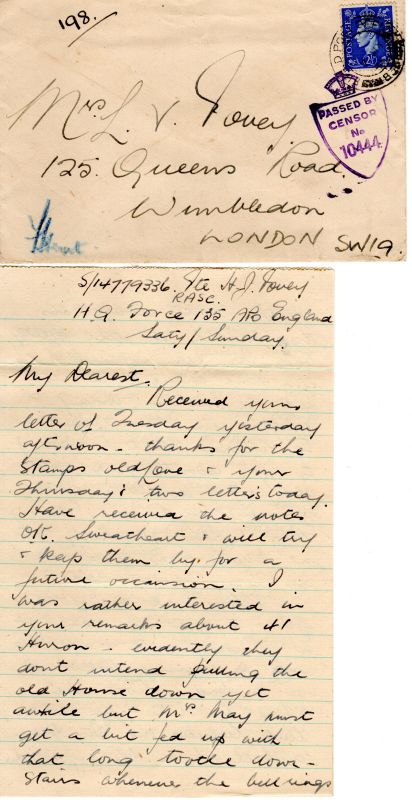 198.
POSTAGE
2½D
PASSED BY
CENSOR
No
10444
Mrs L. V. Tovey
125. Queens Road.
Wimbledon
LONDON SW19.
S/14779336. Pte H.J. Tovey
RASC.
H.Q. Force 135 APO England
Saty/Sunday.
My Dearest.
Received your
letter of Tuesday yesterday
afternoon - thanks for the
stamps old love & your
Thursday's two letters today.
Have received the notes
O.K. Sweetheart & will try
& keep them by for a
future occaission. I
was rather interested in
your remarks about 41
Huron - evidently they
dont intend pulling the
old House down yet
awhile but Mrs May must
get a bit fed up with
that long tootle down-
stairs whenever the bell rings